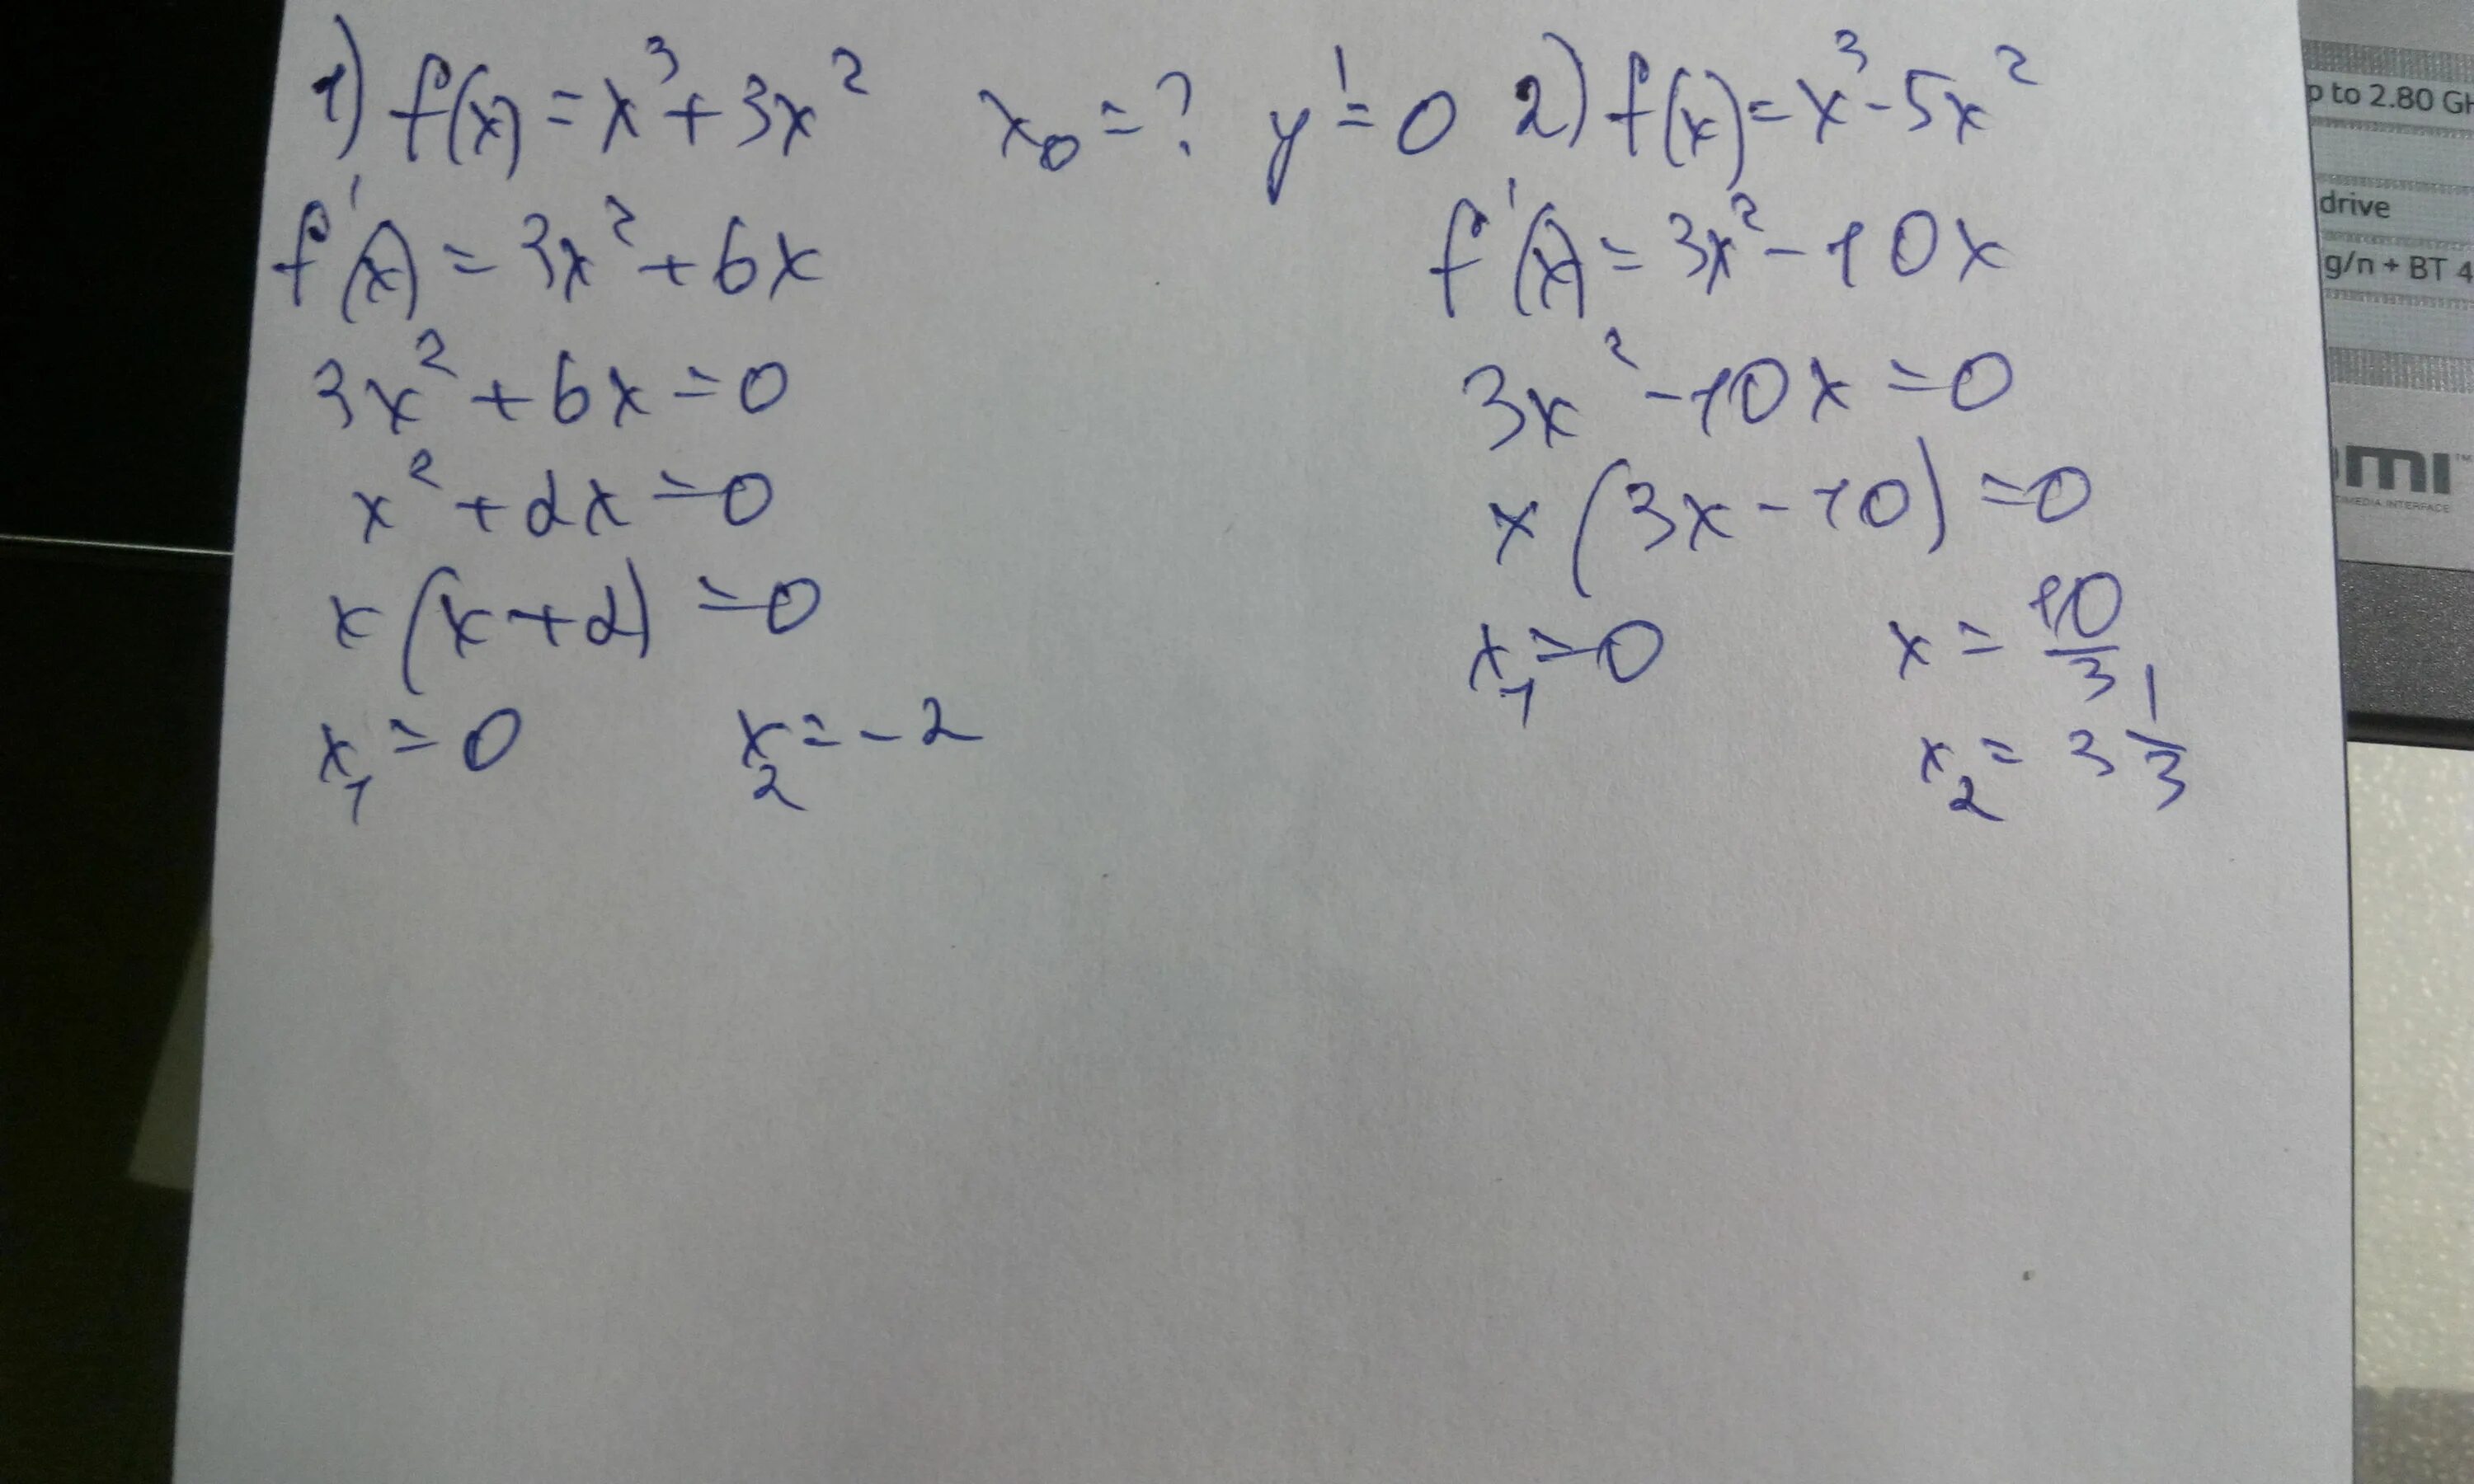 1) f(x) = x³ + 3x²  x₀ = ?  y' = 0
f'(x) = 3x² + 6x
3x² + 6x = 0
x² + 2x = 0
x(x+2) = 0
x₁ = 0  x₂ = -2
2) f(x) = x³ - 5x²
f'(x) = 3x² - 10x
3x² - 10x = 0
x(3x - 10) = 0
x₁ = 0  x = 10/3
x₂ = 3 1/3
p to 2.80 GH
drive
g/n + BT 4
mi™
IMEDIA INTERFACE